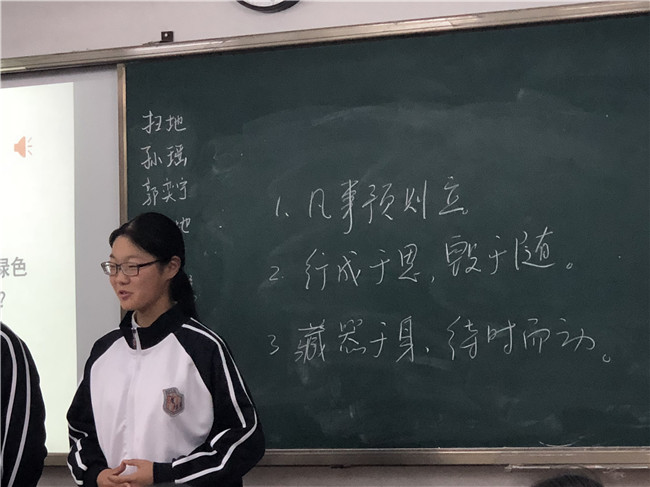 绿色
?
扫地
孙瑶
郭奕宁
地
1、凡事预则立。
2. 行成于思,毁于随。
3 藏器于身、待时而动。